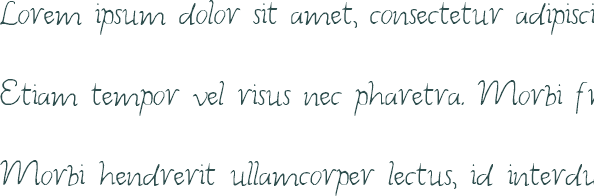 Lorem ipsum dolor sit amet, consectetur adipisci
Etiam tempor vel risus nec pharetra. Morbi fr
Morbi hendrerit ullamcorper lectus, id interdu